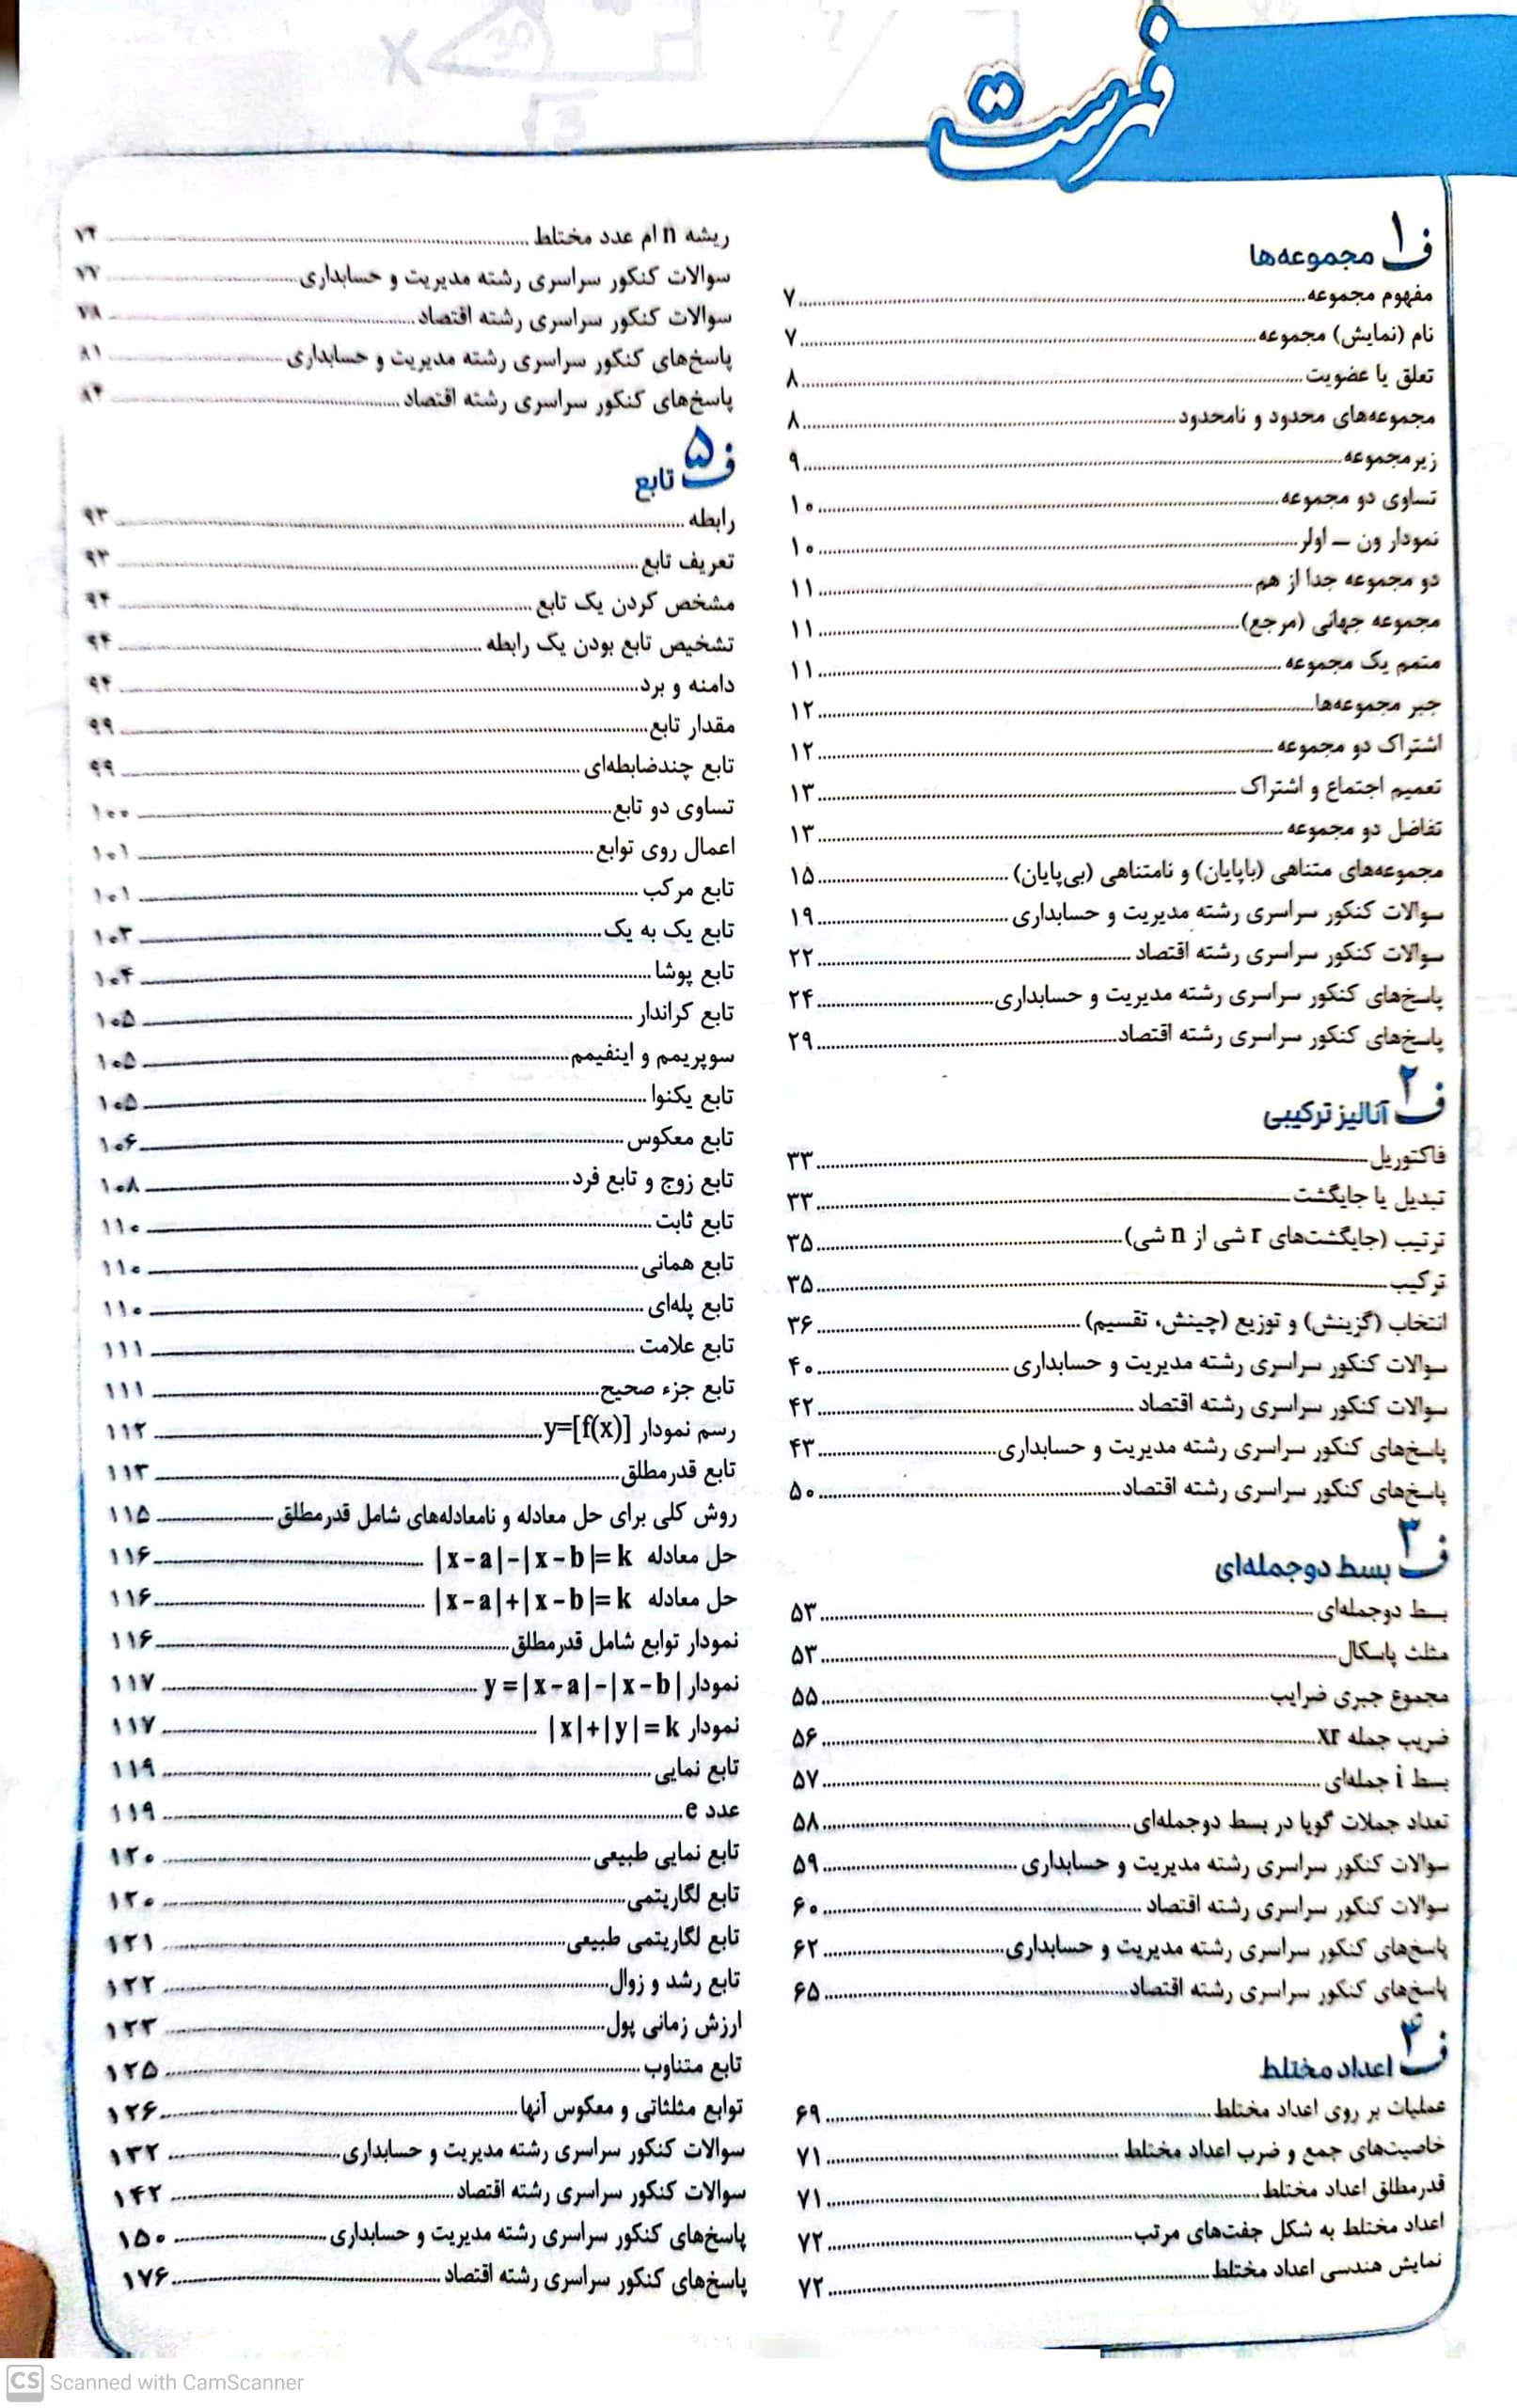 فهرست
ف۱ مجموعه‌ها
مفهوم مجموعه ۷
نام (نمایش) مجموعه ۷
تعلق یا عضویت ۸
مجموعه‌های محدود و نامحدود ۸
زیرمجموعه ۹
تساوی دو مجموعه ۱۰
نمودار ون – اولر ۱۰
دو مجموعه جدا از هم ۱۱
مجموعه جهانی (مرجع) ۱۱
متمم یک مجموعه ۱۱
جبر مجموعه‌ها ۱۲
اشتراک دو مجموعه ۱۲
تعمیم اجتماع و اشتراک ۱۳
تفاضل دو مجموعه ۱۳
مجموعه‌های متناهی (باپایان) و نامتناهی (بی‌پایان) ۱۵
سوالات کنکور سراسری رشته مدیریت و حسابداری ۱۹
سوالات کنکور سراسری رشته اقتصاد ۲۲
پاسخ‌های کنکور سراسری رشته مدیریت و حسابداری ۲۴
پاسخ‌های کنکور سراسری رشته اقتصاد ۲۹
ف۲ آنالیز ترکیبی
فاکتوریل ۳۳
تبدیل یا جایگشت ۳۳
ترتیب (جایگشت‌های r شی از n شی) ۳۵
ترکیب ۳۵
انتخاب (گزینش) و توزیع (چینش، تقسیم) ۳۶
سوالات کنکور سراسری رشته مدیریت و حسابداری ۴۰
سوالات کنکور سراسری رشته اقتصاد ۴۲
پاسخ‌های کنکور سراسری رشته مدیریت و حسابداری ۴۳
پاسخ‌های کنکور سراسری رشته اقتصاد ۵۰
ف۳ بسط دوجمله‌ای
بسط دوجمله‌ای ۵۳
مثلث پاسکال ۵۳
مجموع جبری ضرایب ۵۵
ضریب جمله xr ۵۶
بسط i جمله‌ای ۵۷
تعداد جملات گویا در بسط دوجمله‌ای ۵۸
سوالات کنکور سراسری رشته مدیریت و حسابداری ۵۹
سوالات کنکور سراسری رشته اقتصاد ۶۰
پاسخ‌های کنکور سراسری رشته مدیریت و حسابداری ۶۲
پاسخ‌های کنکور سراسری رشته اقتصاد ۶۵
ف۴ اعداد مختلط
عملیات بر روی اعداد مختلط ۶۹
خاصیت‌های جمع و ضرب اعداد مختلط ۷۱
قدرمطلق اعداد مختلط ۷۱
اعداد مختلط به شکل جفت‌های مرتب ۷۲
نمایش هندسی اعداد مختلط ۷۲
ریشه n ام عدد مختلط ۷۴
سوالات کنکور سراسری رشته مدیریت و حسابداری ۷۷
سوالات کنکور سراسری رشته اقتصاد ۷۸
پاسخ‌های کنکور سراسری رشته مدیریت و حسابداری ۸۱
پاسخ‌های کنکور سراسری رشته اقتصاد ۸۴
ف۵ تابع
رابطه ۹۳
تعریف تابع ۹۳
مشخص کردن یک تابع ۹۴
تشخیص تابع بودن یک رابطه ۹۴
دامنه و برد ۹۴
مقدار تابع ۹۹
تابع چندضابطه‌ای ۹۹
تساوی دو تابع ۱۰۰
اعمال روی توابع ۱۰۱
تابع مرکب ۱۰۱
تابع یک به یک ۱۰۳
تابع پوشا ۱۰۴
تابع کراندار ۱۰۵
سوپریمم و اینفیمم ۱۰۵
تابع یکنوا ۱۰۵
تابع معکوس ۱۰۶
تابع زوج و تابع فرد ۱۰۸
تابع ثابت ۱۱۰
تابع همانی ۱۱۰
تابع پله‌ای ۱۱۰
تابع علامت ۱۱۱
تابع جزء صحیح ۱۱۱
رسم نمودار y=[f(x)] ۱۱۲
تابع قدرمطلق ۱۱۳
روش کلی برای حل معادله و نامعادله‌های شامل قدرمطلق ۱۱۵
حل معادله |x-a|-|x-b|=k ۱۱۶
حل معادله |x-a|+|x-b|=k ۱۱۶
نمودار توابع شامل قدرمطلق ۱۱۶
نمودار y=|x-a|-|x-b| ۱۱۷
نمودار |x|+|y|=k ۱۱۷
تابع نمایی ۱۱۹
عدد e ۱۱۹
تابع نمایی طبیعی ۱۲۰
تابع لگاریتمی ۱۲۰
تابع لگاریتمی طبیعی ۱۲۱
تابع رشد و زوال ۱۲۲
ارزش زمانی پول ۱۲۳
تابع متناوب ۱۲۵
توابع مثلثاتی و معکوس آنها ۱۲۶
سوالات کنکور سراسری رشته مدیریت و حسابداری ۱۳۲
سوالات کنکور سراسری رشته اقتصاد ۱۴۲
پاسخ‌های کنکور سراسری رشته مدیریت و حسابداری ۱۵۰
پاسخ‌های کنکور سراسری رشته اقتصاد ۱۷۶
CS Scanned with CamScanner